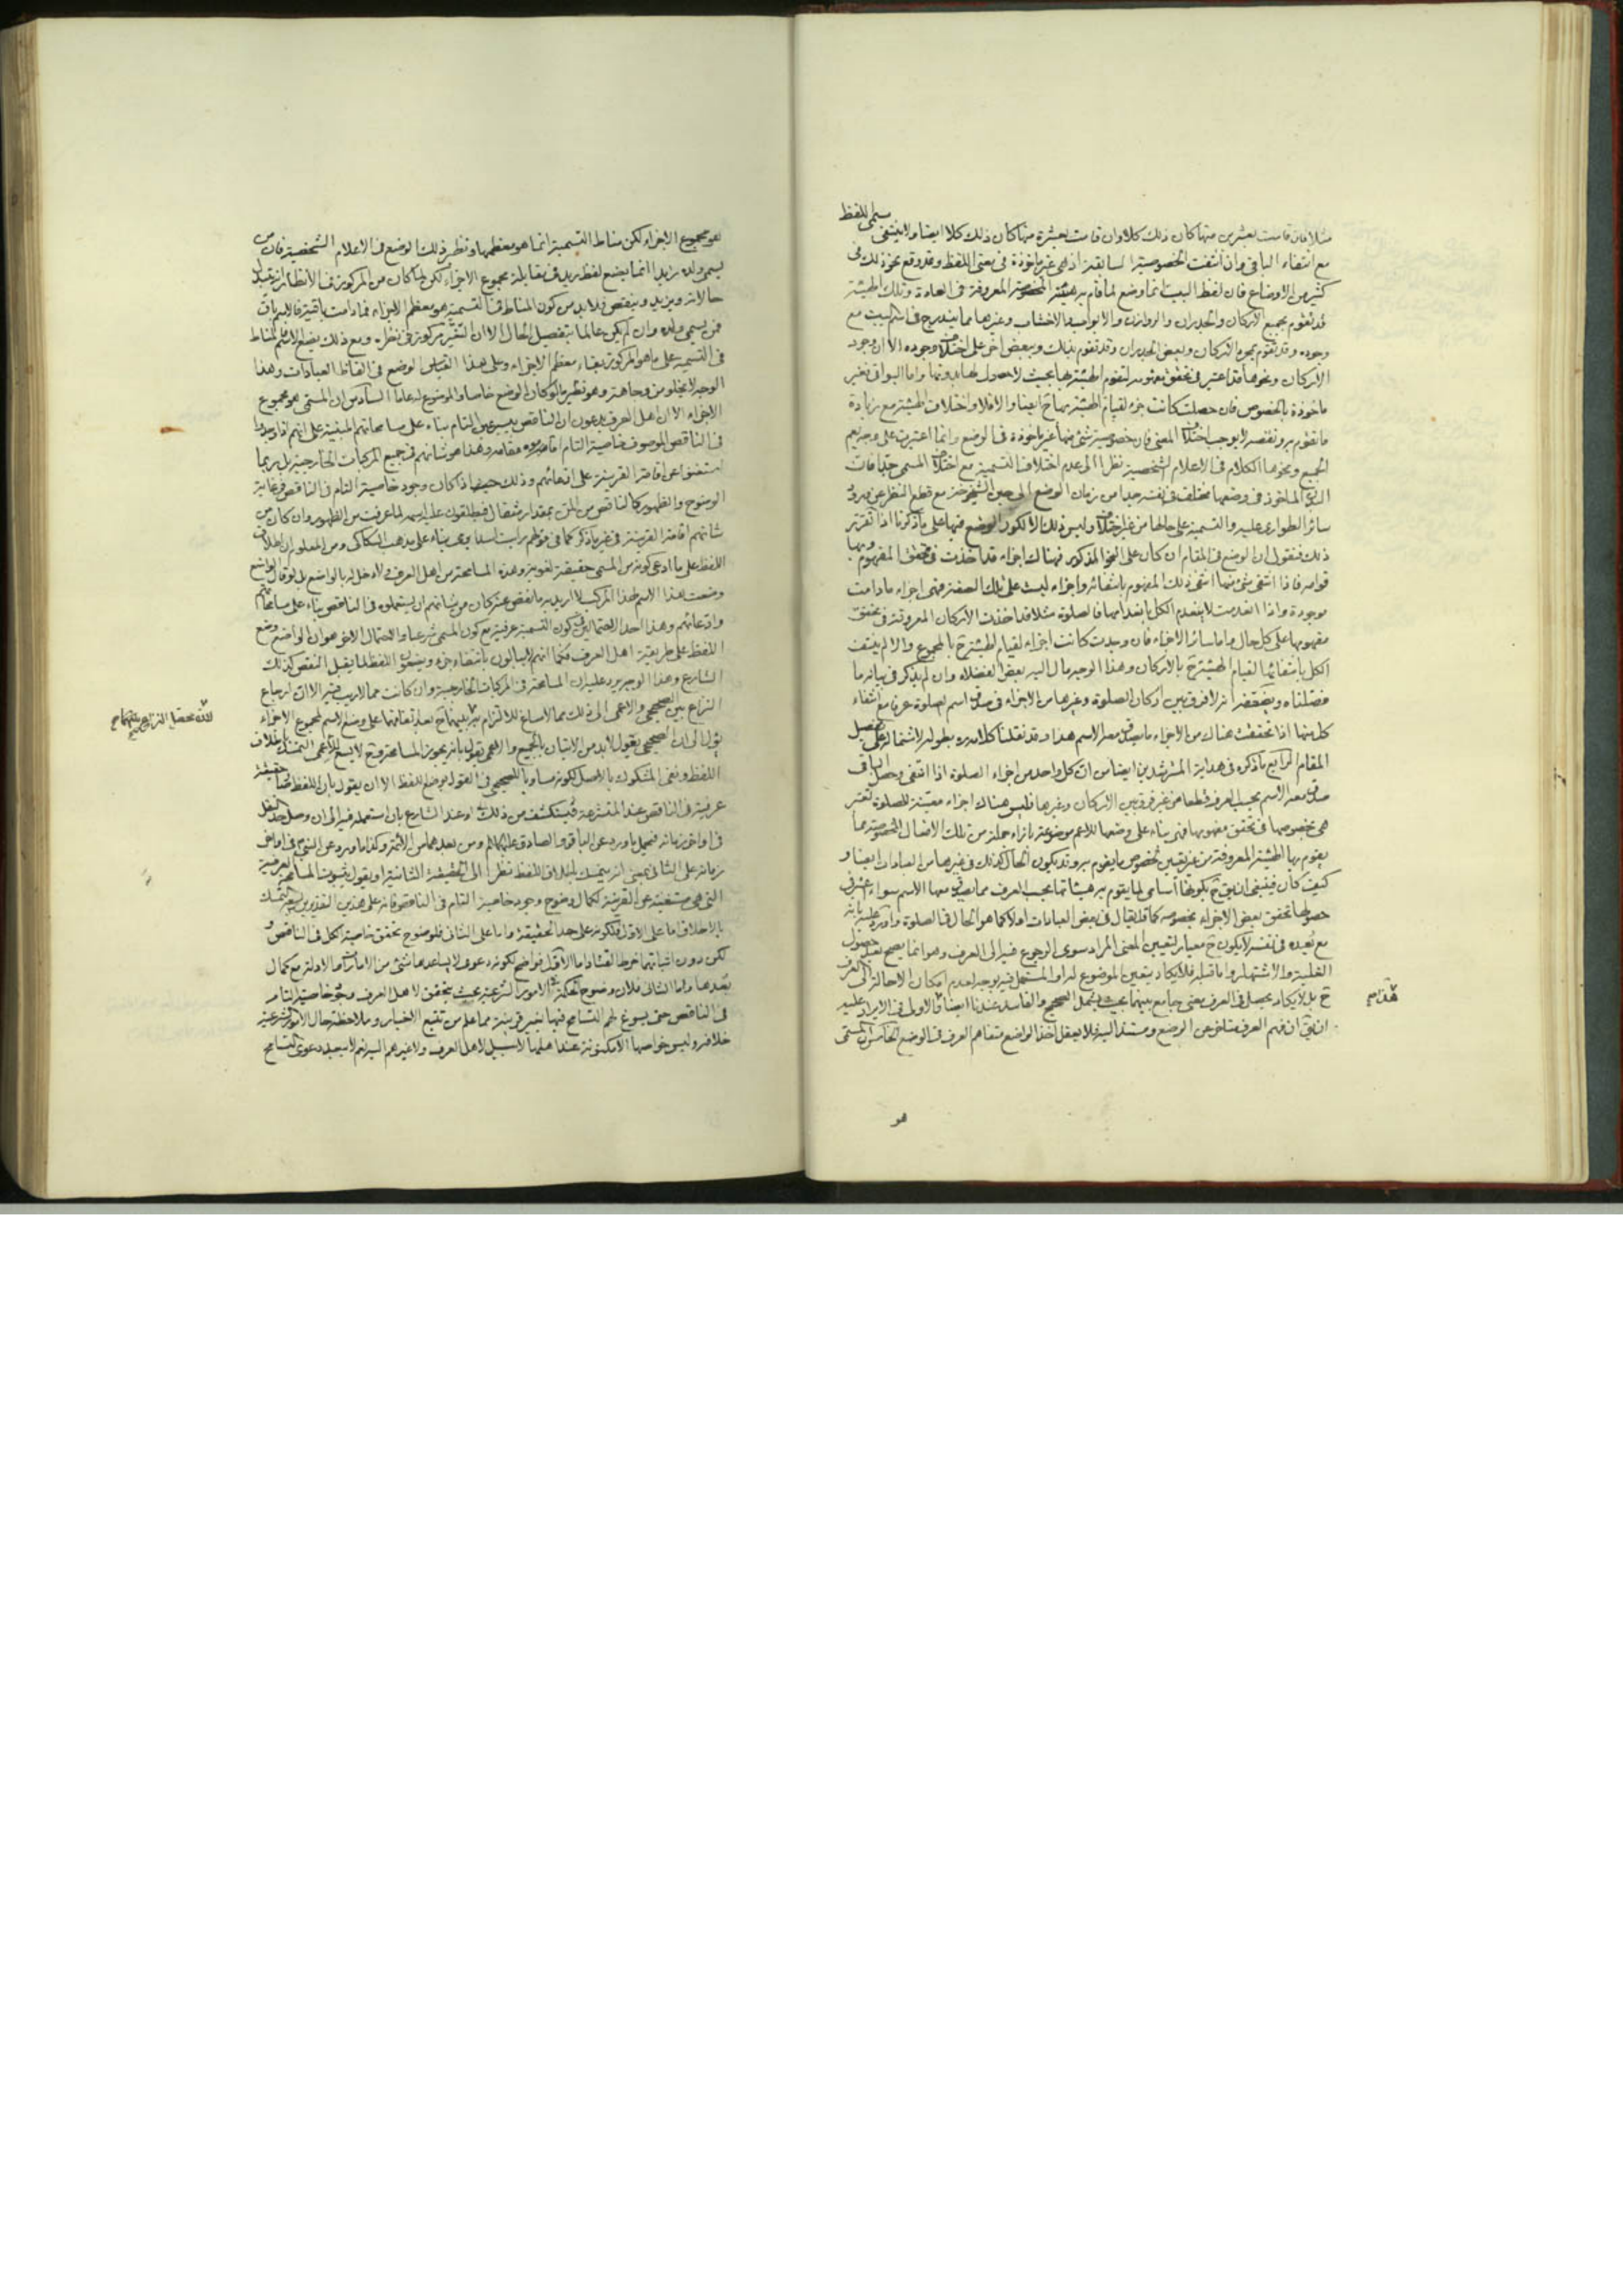 مثلا فان قامت بعشرين منها كان ذلك كلا وان قامت بعشرة منها كان ذلك كلا ايضا ولا ينتفى مسمى اللفظ
مع انتفاء الباقى وان انتفت الخصوصية السابقة اذ هى غير ماخوذة فى معنى اللفظ وقد وقع نحو ذلك فى
كثير من الاوضاع فان لفظ البيت انما وضع لما قام به الهيئة المخصوصة المعروفة فى العادة وتلك الهيئة
قد تقوم بجميع الاركان والجدران والروازن والابواب والاخشاب وغيرها مما يندرج فى اسم البيت مع
وجوده وقد تقوم بمجرد الاركان وبعض الجدران وقد تقوم بذلك وببعض اخر على اختلاف وجوده الا ان وجود
الاركان ونحوها قد اعتبر فى تحقق مفهومه لتقوم الهيئة بها بحيث لا حصول لها بدونها واما البواقى فغير
ماخوذة بالخصوص فان حصلت كانت جزء لقيام الهيئة بها ح ايضا والا فلا واختلاف الهيئة مع زيادة
ما تقوم به ونقصه لا يوجب اختلاف المعنى فان خصوصية شئ منها غير ماخوذة فى الوضع وانما اعتبرت على وجه يعم
الجميع ونحوها الكلام فى الاعلام الشخصية نظرا الى عدم اختلاف التسمية مع اختلاف المسمى جدا فان
البدن الماخوذ فى وضعها مختلف فى نفسه جدا من زمان الوضع الى حين الشيخوخة مع قطع النظر عن ورود
سائر الطوارى عليه والتسمية على حالها من غير اختلاف وليس ذلك الا لكون الوضع فيها على ما ذكرنا اذا تقرر
ذلك فنقول ان الوضع فى المقام ان كان على النحو المذكور فهناك اجزاء قد اخذت فى تحقق المفهوم وبها
قوامه فاذا انتفى شئ منها انتفى ذلك المفهوم بانتفائه واجزاء ليست على تلك الصفة فهى اجزاء ما دامت
موجودة واذا انعدمت لا ينعدم الكل بانعدامها فالصلوة مثلا قد اخذت الاركان المعروفة فى تحقق
مفهومها على كل حال واما سائر الاجزاء فان وجدت كانت اجزاء لقيام الهيئة ح بالمجموع والا لم ينتف
الكل بانتفائها لقيام الهيئة ح بالاركان وهذا الوجه مال اليه بعض الفضلاء وان لم يذكر فى بيانه ما
فصلناه ويضعفه انه لا فرق بين اركان الصلوة وغيرها من الاجزاء فى صدق اسم الصلوة عرفا مع انتفاء
كل منها اذا تحققت هناك من الاجزاء ما يصدق معه الاسم هذا وقد نقلنا كلامه ره بطوله لاشتماله على تفصيل
المقام الرابع ما ذكره فى هداية المسترشدين ايضا من ان كل واحد من اجزاء الصلوة اذا انتفى وحصل الباقى
صدق معه الاسم بحسب العرف قطعا من غير فرق بين الاركان وغيرها فليس هناك اجزاء معينة للصلوة تعتبر
هى بخصوصها فى تحقق مفهومها فهى بناء على وضعها للاعم موضوعة بازاء جملة من تلك الافعال المخصوصة مما
يقوم بها الهيئة المعروفة من غير تعيين لخصوص ما يقوم به وقد يكون الحال كذلك فى غيرها من العبادات ايضا و
كيف كان فينبغى ان يق ح بكونها أسامى لما يقوم به هيئاتها بحسب العرف مما يصدق معها الاسم سواء اعتبر فى
حصولها تحقق بعض الاجزاء بخصوصه كما قد يقال فى بعض العبادات اولا كما هو الحال فى الصلوة واورد عليه بانه
مع بُعده فى نفسه لا يكون ح معيار لتعيين المعنى المراد سوى الرجوع فيه الى العرف وهو انما يصح بعد حصول
الغلبة والاشتهار واما قبله فلا يكاد يتعين الموضوع له او المستعمل فيه بوجه لعدم امكان الاحالة الى العرف
ح بل لا يكاد يحصل فى العرف معنى جامع بينهما بحيث يشمل الصحيح والفاسد عندنا ايضا فالاولى فى الايراد عليه
ان يق ان فهم العرف متاخر عن الوضع ومستند اليه فلا يعقل اخذ الواضع متفاهم العرف فى الوضع الخامس ان المسمى
هو
هو مجموع الاجزاء لكن مناط التسمية انما هو معظمها ونظير ذلك الوضع فى الاعلام الشخصية فان من
يسمى ولده زيدا انما يضع لفظ زيد فى مقابلة مجموع الاجزاء لكن لما كان من المركوز فى الانظار انه يتبدل
حالاته ويزيد وينقص فلا بد من كون المناط فى التسمية هو معظم الاجزاء فما دامت باقية فالاسم باق
فمن يسمى ولده وان لم يكن عالما بتفصيل الحال الا ان التغير مركوز فى نظره ومع ذلك يضع الاسم فالمناط
فى التسمية على ما هو المركوز بقاء معظم الاجزاء وعلى هذا القياس الوضع فى الفاظ العبادات وهذا
الوجه لا يخلو من وجاهة وهو نظير ما لو كان الوضع خاصا والموضوع له عاما السادس ان المسمى هو مجموع
الاجزاء الا ان اهل العرف يدعون ان الناقص بعينه هو التام بناء على مسامحاتهم المبنية على انهم اذا وجدوا
فى الناقص الموصوف خاصية التام اقاموه مقامه وهذا هو شانهم فى جميع المركبات الخارجية بل ربما
استغنوا عن اقامة القرينة على ادعائهم وذلك حيث كان وجود خاصية التام فى الناقص فى غاية
الوضوح والظهور كالناقص من المن بمقدار مثقال فيطلقون عليه اسمه لما عرفت من الظهور وان كان من
شانهم اقامة القرينة فى غير ما ذكر كما فى قولهم رايت اسدا يرمى بناء على مذهب السكاكى ومن المعلوم ان اطلاق
اللفظ على ما ادعى كونه من المسمى حقيقة لغوية وهذه المسامحة من اهل العرف ولا دخل له بالواضع بل لو قال الواضع
وضعت هذا الاسم لهذا المركب لا اريد به ما نقص عنه كان من شانهم ان يستعملوه فى الناقص بناء على مسامحاتهم
وادعائهم وهذا احد الاحتمالين فى كون التسمية عرفية مع كون المسمى شرعيا والاحتمال الاخر هو ان الواضع وضع
اللفظ على طريقة اهل العرف فكما انهم لا يبالون بانتفاء جزء ويضعون اللفظ لما يقبل النقص كذلك
الشارع وهذا الوجه يرد عليه ان المسامحة فى المركبات الخارجية وان كانت مما لا ريب فيه الا ان ارجاع
النزاع بين الصحيحى والاعمى الى ذلك مما لا مساغ للالتزام به بعد اتفاقهما على وضع الاسم لمجموع الاجزاء
يؤل الى ان الصحيحى يقول لابد من الاتيان بالجميع والاعمى يقول بانه يجوز المسامحة وح لا يسع للاعمى التمسك باطلاق
اللفظ ونفى المشكوك بالاصل لكونه مساويا للصحيحى فى القول بوضع اللفظ الا ان يقول بان اللفظ صار حقيقة
عرفية فى الناقص عند المتشرعة فيستكشف من ذلك او عند الشارع بان استعمله فيه الى ان وصل حد النقل
فى اواخر زمانه فيحمل ما ورد عن الباقر والصادق عليهما السلام ومن بعدهما من الائمة وكذا ما ورد عن النبى ص فى اواخر
زمانه على الثانى بمعنى انه يتمسك باطلاق اللفظ نظرا الى الحقيقة الثانية او يقول بثبوت المسامحة العرفية
التى هى مستغنية عن القرينة لكمال وضوح وجود خاصية التام فى الناقص فانه على هذين التقديرين يتمسك
بالاطلاق اما على الاول فلكونه على حد الحقيقة واما على الثانى فلوضوح تحقق خاصية الكل فى الناقص و
لكن دون اثباتهما خرط القتاد اما الاول فواضح لكونه دعوى لا يساعدها شئ من الامارات والادلة مع كمال
بُعدها واما الثانى فلان وضوح الحكمة فى الامور الشرعية بحيث يتحقق لاهل العرف وجود خاصية التام
فى الناقص حتى يسوغ لهم التسامح فيها بغير قرينة مما علم من تتبع الاخبار وملاحظة حال الامور الشرعية
خلافه وليس خواصها الا مكنونة عند اهلها لا سبيل لاهل العرف ولا غيرهم اليه نعم لا يبعد دعوى التسامح